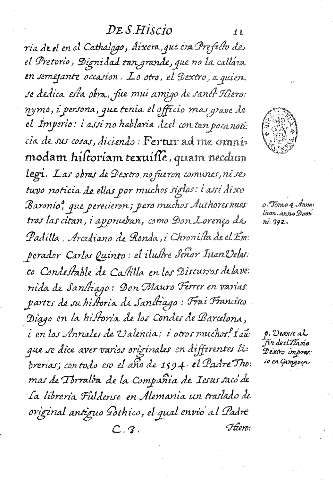 DE S. HISCIO 11
ria de el en el Cathalogo, dixera, que era Prefecto de
el Pretorio, Dignidad tan grande, que no la callàra
en semejante occasion. Lo otro, el Dextro, a quien
se dedica esta obra, fue mui amigo de sanct Hiero-
nymo, i persona, que tenia el officio mas grave de
el Imperio: i assi no hablaria de el con tan poca noti-
cia de sus cosas, diciendo: Fertur ad me omni-
modam historiam texuisse, quam necdum
legi. Las obras de Dextro no fueron comunes, ni se
tuvo noticia de ellas por muchos siglos: i assi dixo
Baronio, que perecieron; pero muchos Authores nues-
tros las citan, i apprueban, como Don Lorenço de
Padilla, Arcediano de Ronda, i Chronista de el Em-
perador Carlos Quinto: el ilustre Señor Iuan Velas-
co Condestable de Castilla en los Discursos de la ve-
nida de Sanctiago: Don Mauro Ferrer en varias
partes de su historia de Sanctiago: Frai Francisco
Diago en la historia de los Condes de Barcelona,
i en los Annales de Valencia: i otros muchos. I aũ
que se dice aver varios originales en differentes li-
brerias; con todo esso el año de 1594. el Padre Tho-
mas de Torralba de la Compañia de Iesus sacò de
la libreria Fuldense en Alemania un traslado de
original antiguo Gothico, el qual envio al Padre
C. 3. Hiero-
o. Tomo 4. Anna-
lium. anno Domi-
ni 392.
p. Vease al
fin de el Flavio
Dextro impres-
so en